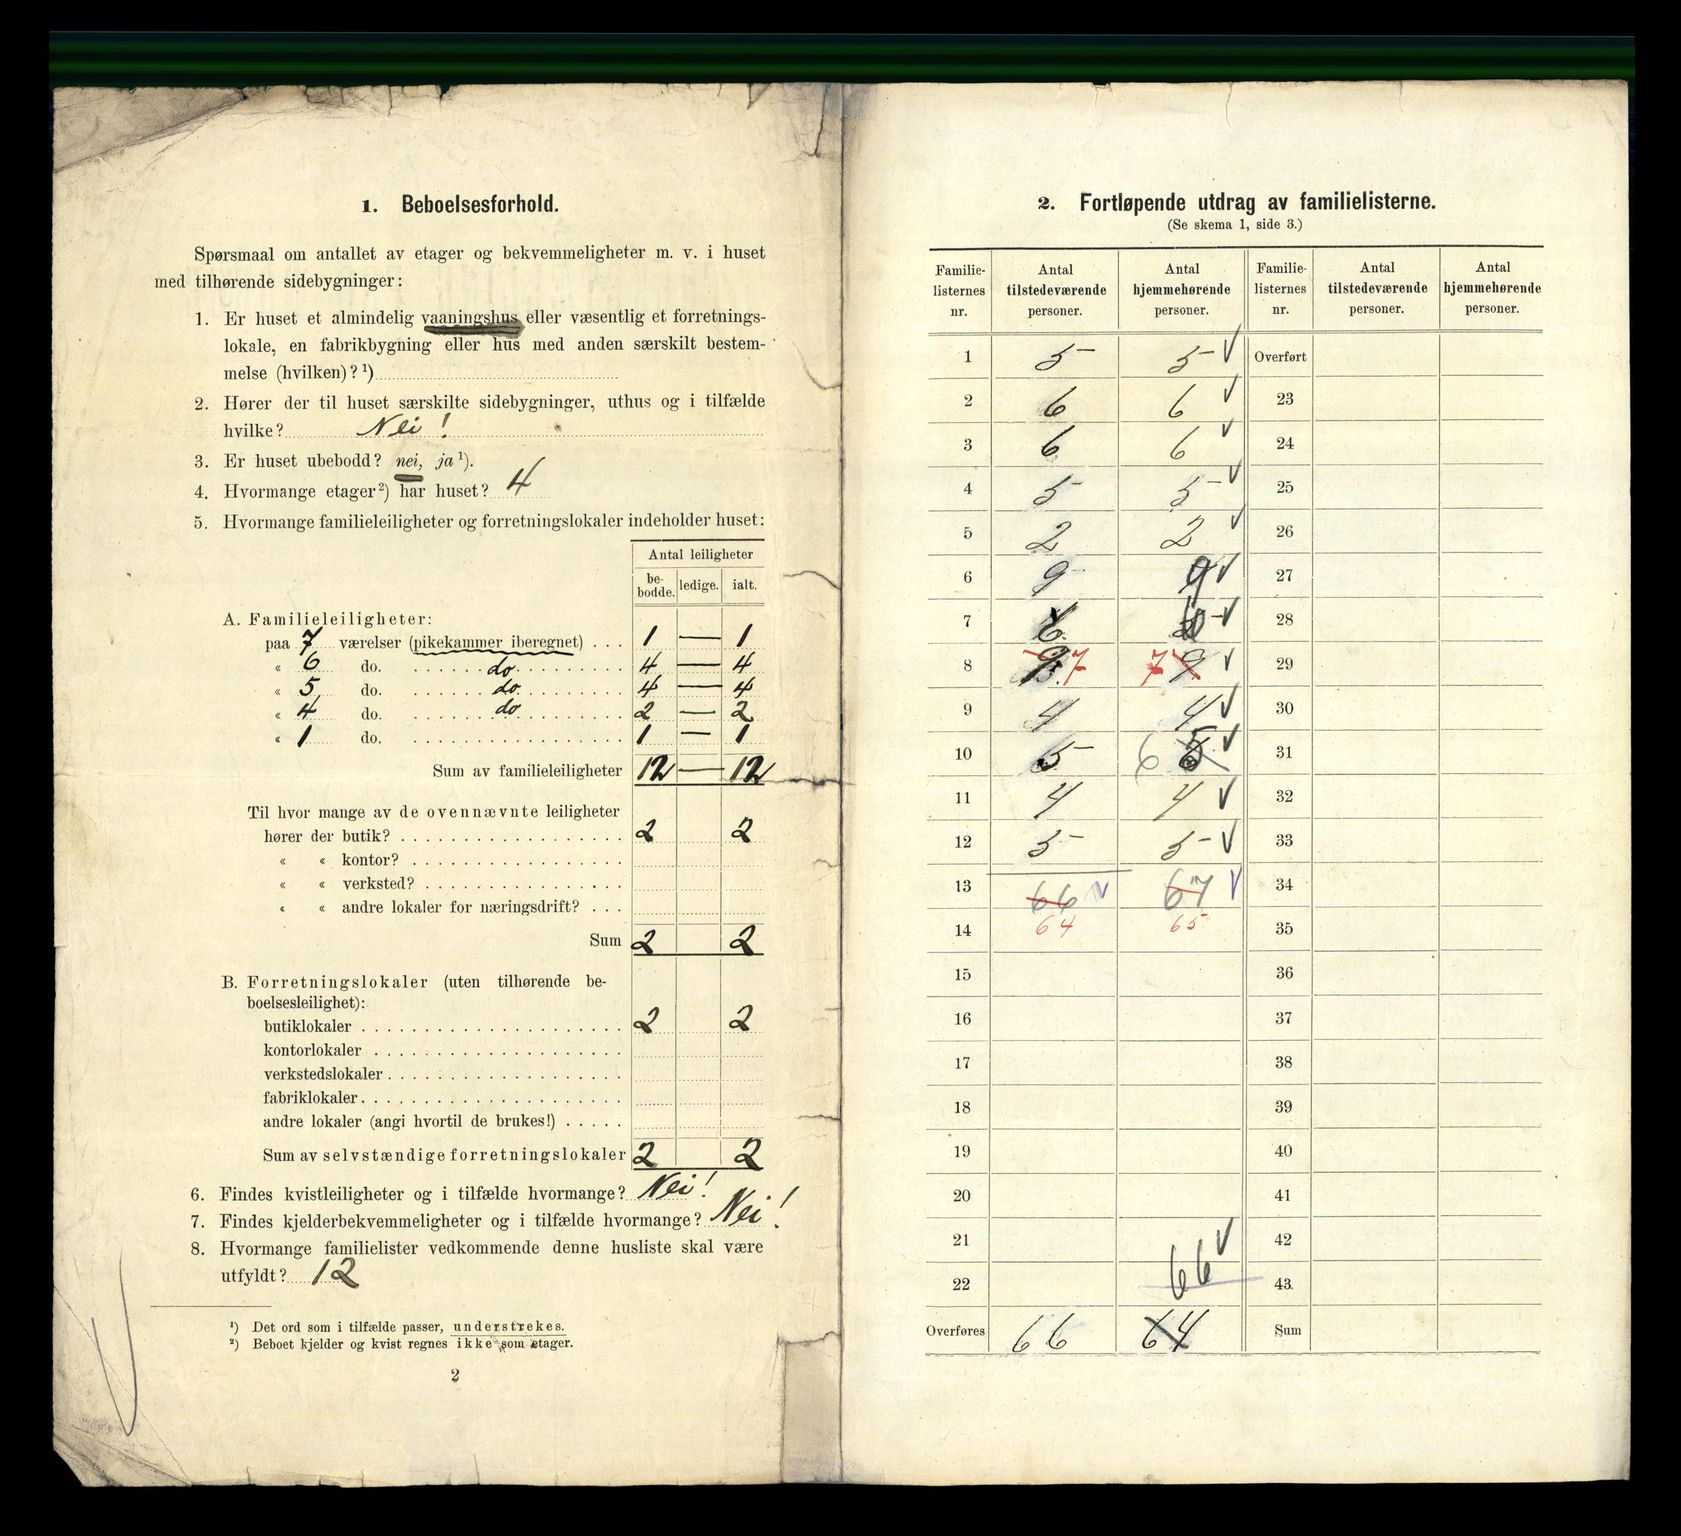 1. Beboelsesforhold.
Spørsmaal om antallet av etager og bekvemmeligheter m. v. i huset
med tilhørende sidebygninger:
1. Er huset et almindelig vaaningshus eller væsentlig et forretnings-
lokale, en fabrikbygning eller hus med anden særskilt bestem-
melse (hvilken)? ¹)
2. Hører der til huset særskilte sidebygninger, uthus og i tilfælde
hvilke? Nei!
3. Er huset ubebodd? nei, ja ¹).
4. Hvormange etager ²) har huset? 4
5. Hvormange familieleiligheter og forretningslokaler indeholder huset:
Antal leiligheter
be-bodde. ledige. ialt.
A. Familieleiligheter:
paa 7 værelser (pikekammer iberegnet) . . . 1 — 1
« 6 do. do 4 — 4
« 5 do. do. 4 — 4
« 4 do. do 2 — 2
« 1 do. 1 — 1
Sum av familieleiligheter 12 — 12
Til hvor mange av de ovennævnte leiligheter
hører der butik? 2 2
« « kontor?
« « verksted?
« « andre lokaler for næringsdrift? . . .
Sum 2 2
B. Forretningslokaler (uten tilhørende be-
boelsesleilighet):
butiklokaler 2 2
kontorlokaler
verkstedslokaler
fabriklokaler
andre lokaler (angi hvortil de brukes!)
Sum av selvstændige forretningslokaler 2 2
6. Findes kvistleiligheter og i tilfælde hvormange? Nei!
7. Findes kjelderbekvemmeligheter og i tilfælde hvormange? Nei!
8. Hvormange familielister vedkommende denne husliste skal være
utfyldt? 12
¹) Det ord som i tilfælde passer, understrekes.
²) Beboet kjelder og kvist regnes ikke som etager.
2
2. Fortløpende utdrag av familielisterne.
(Se skema 1, side 3.)
Familie-listernes nr. Antal tilstedeværende personer. Antal hjemmehørende personer. Familie-listernes nr. Antal tilstedeværende personer. Antal hjemmehørende personer.
1 5 5 Overført
2 6 6 23
3 6 6 24
4 5 5 25
5 2 2 26
6 9 9 27
7 28
8 7 7 9 29
9 4 4 30
10 5 6 31
11 4 4 32
12 5 5 33
13 66 67 34
14 64 65 35
15 36
16 37
17 38
18 39
19 40
20 41
21 42
22 66 43
Overføres 66 64 Sum